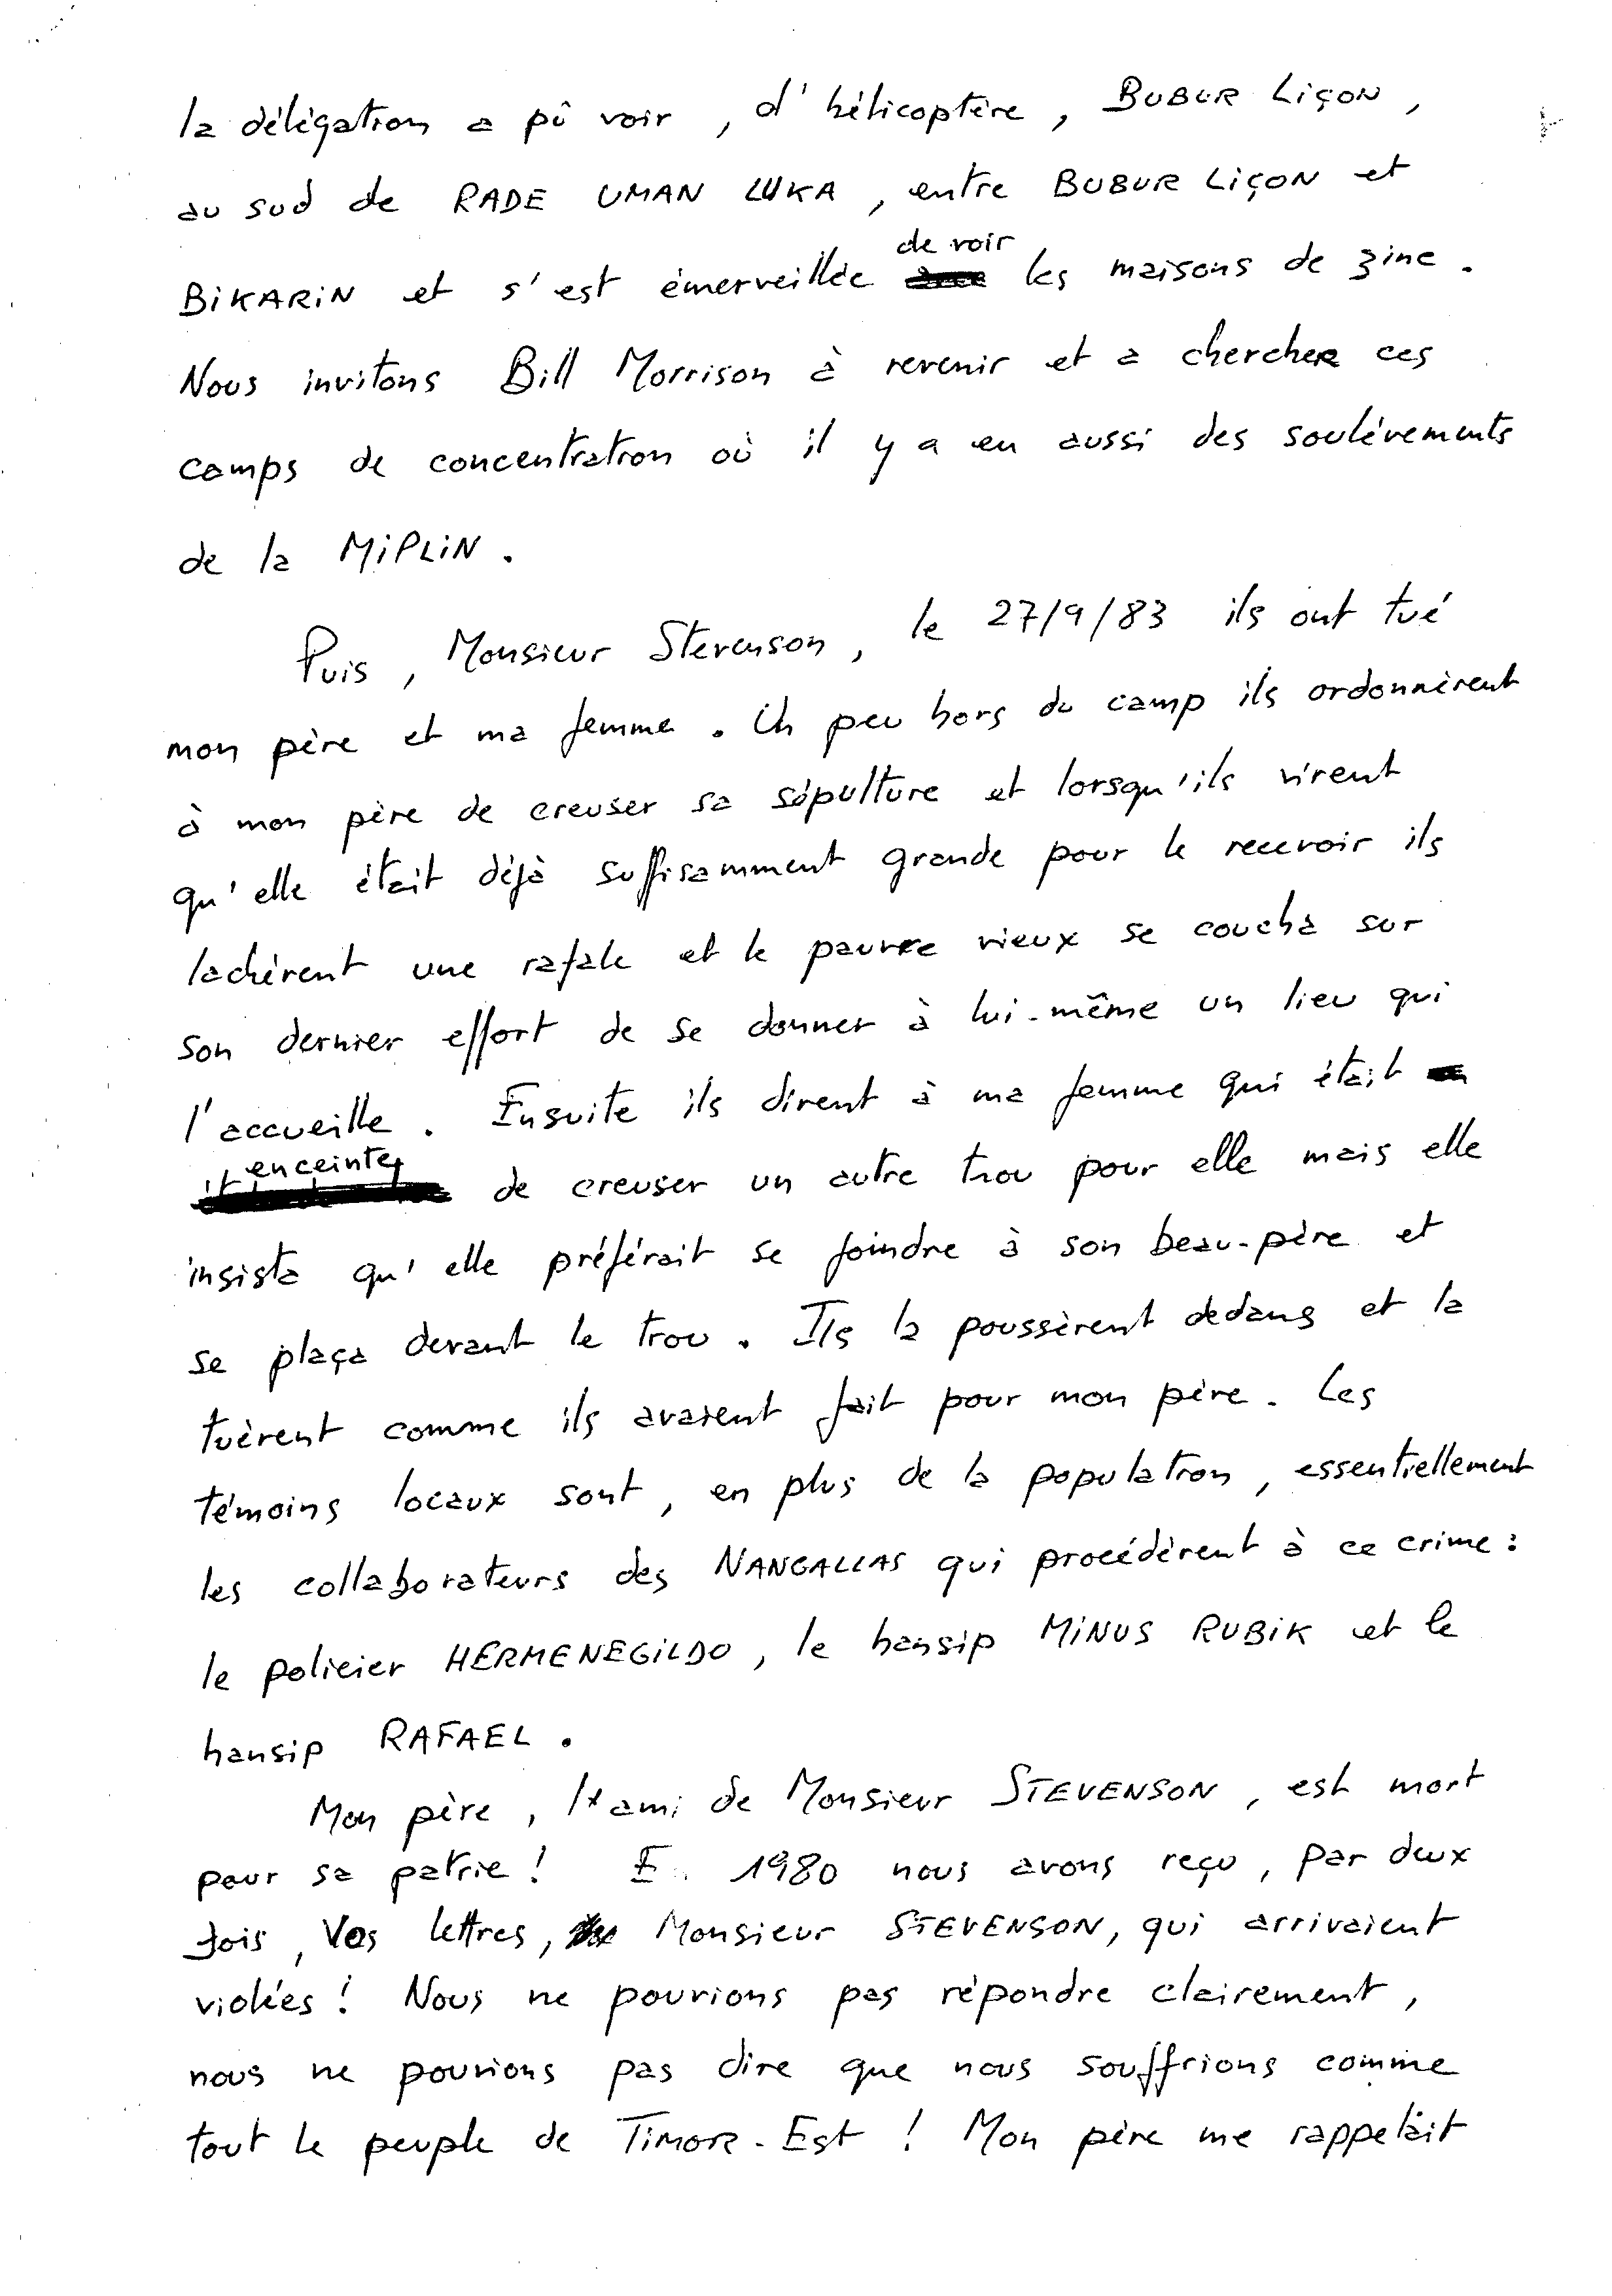 la délégation a pû voir, d'hélicoptère, BUBUR LIÇON,
au sud de RADE UMAN LUKA, entre BUBUR LIÇON et
BIKARIN et s'est émerveillée de voir les maisons de zinc.
Nous invitons Bill Morrison à revenir et a chercher ces
camps de concentration où il y a eu aussi des soulèvements
de la MIPLIN.
Puis, Monsieur Stevenson, le 27/9/83 ils ont tué
mon père et ma femme. Un peu hors du camp ils ordonnèrent
à mon père de creuser sa sépulture et lorsqu'ils virent
qu'elle était déjà suffisamment grande pour le recevoir ils
lachèrent une rafale et le pauvre vieux se coucha sur
son dernier effort de se donner à lui-même un lieu qui
l'accueille. Ensuite ils dirent à ma femme qui était
enceinte, de creuser un autre trou pour elle mais elle
insista qu'elle préférait se joindre à son beau-père et
se plaça devant le trou. Ils la poussèrent dedans et la
tuèrent comme ils avaient fait pour mon père. Les
témoins locaux sont, en plus de la population, essentiellement
les collaborateurs des NANGALLAS qui procédèrent à ce crime:
le policier HERMENEGILDO, le hansip MINUS RUBIK et le
hansip RAFAEL.
Mon père, l'ami de Monsieur STEVENSON, est mort
pour sa patrie! En 1980 nous avons reçu, par deux
fois, Vos lettres, Monsieur STEVENSON, qui arrivaient
violées! Nous ne pouvions pas répondre clairement,
nous ne pouvions pas dire que nous souffrions comme
tout le peuple de TIMOR-Est! Mon père me rappelait